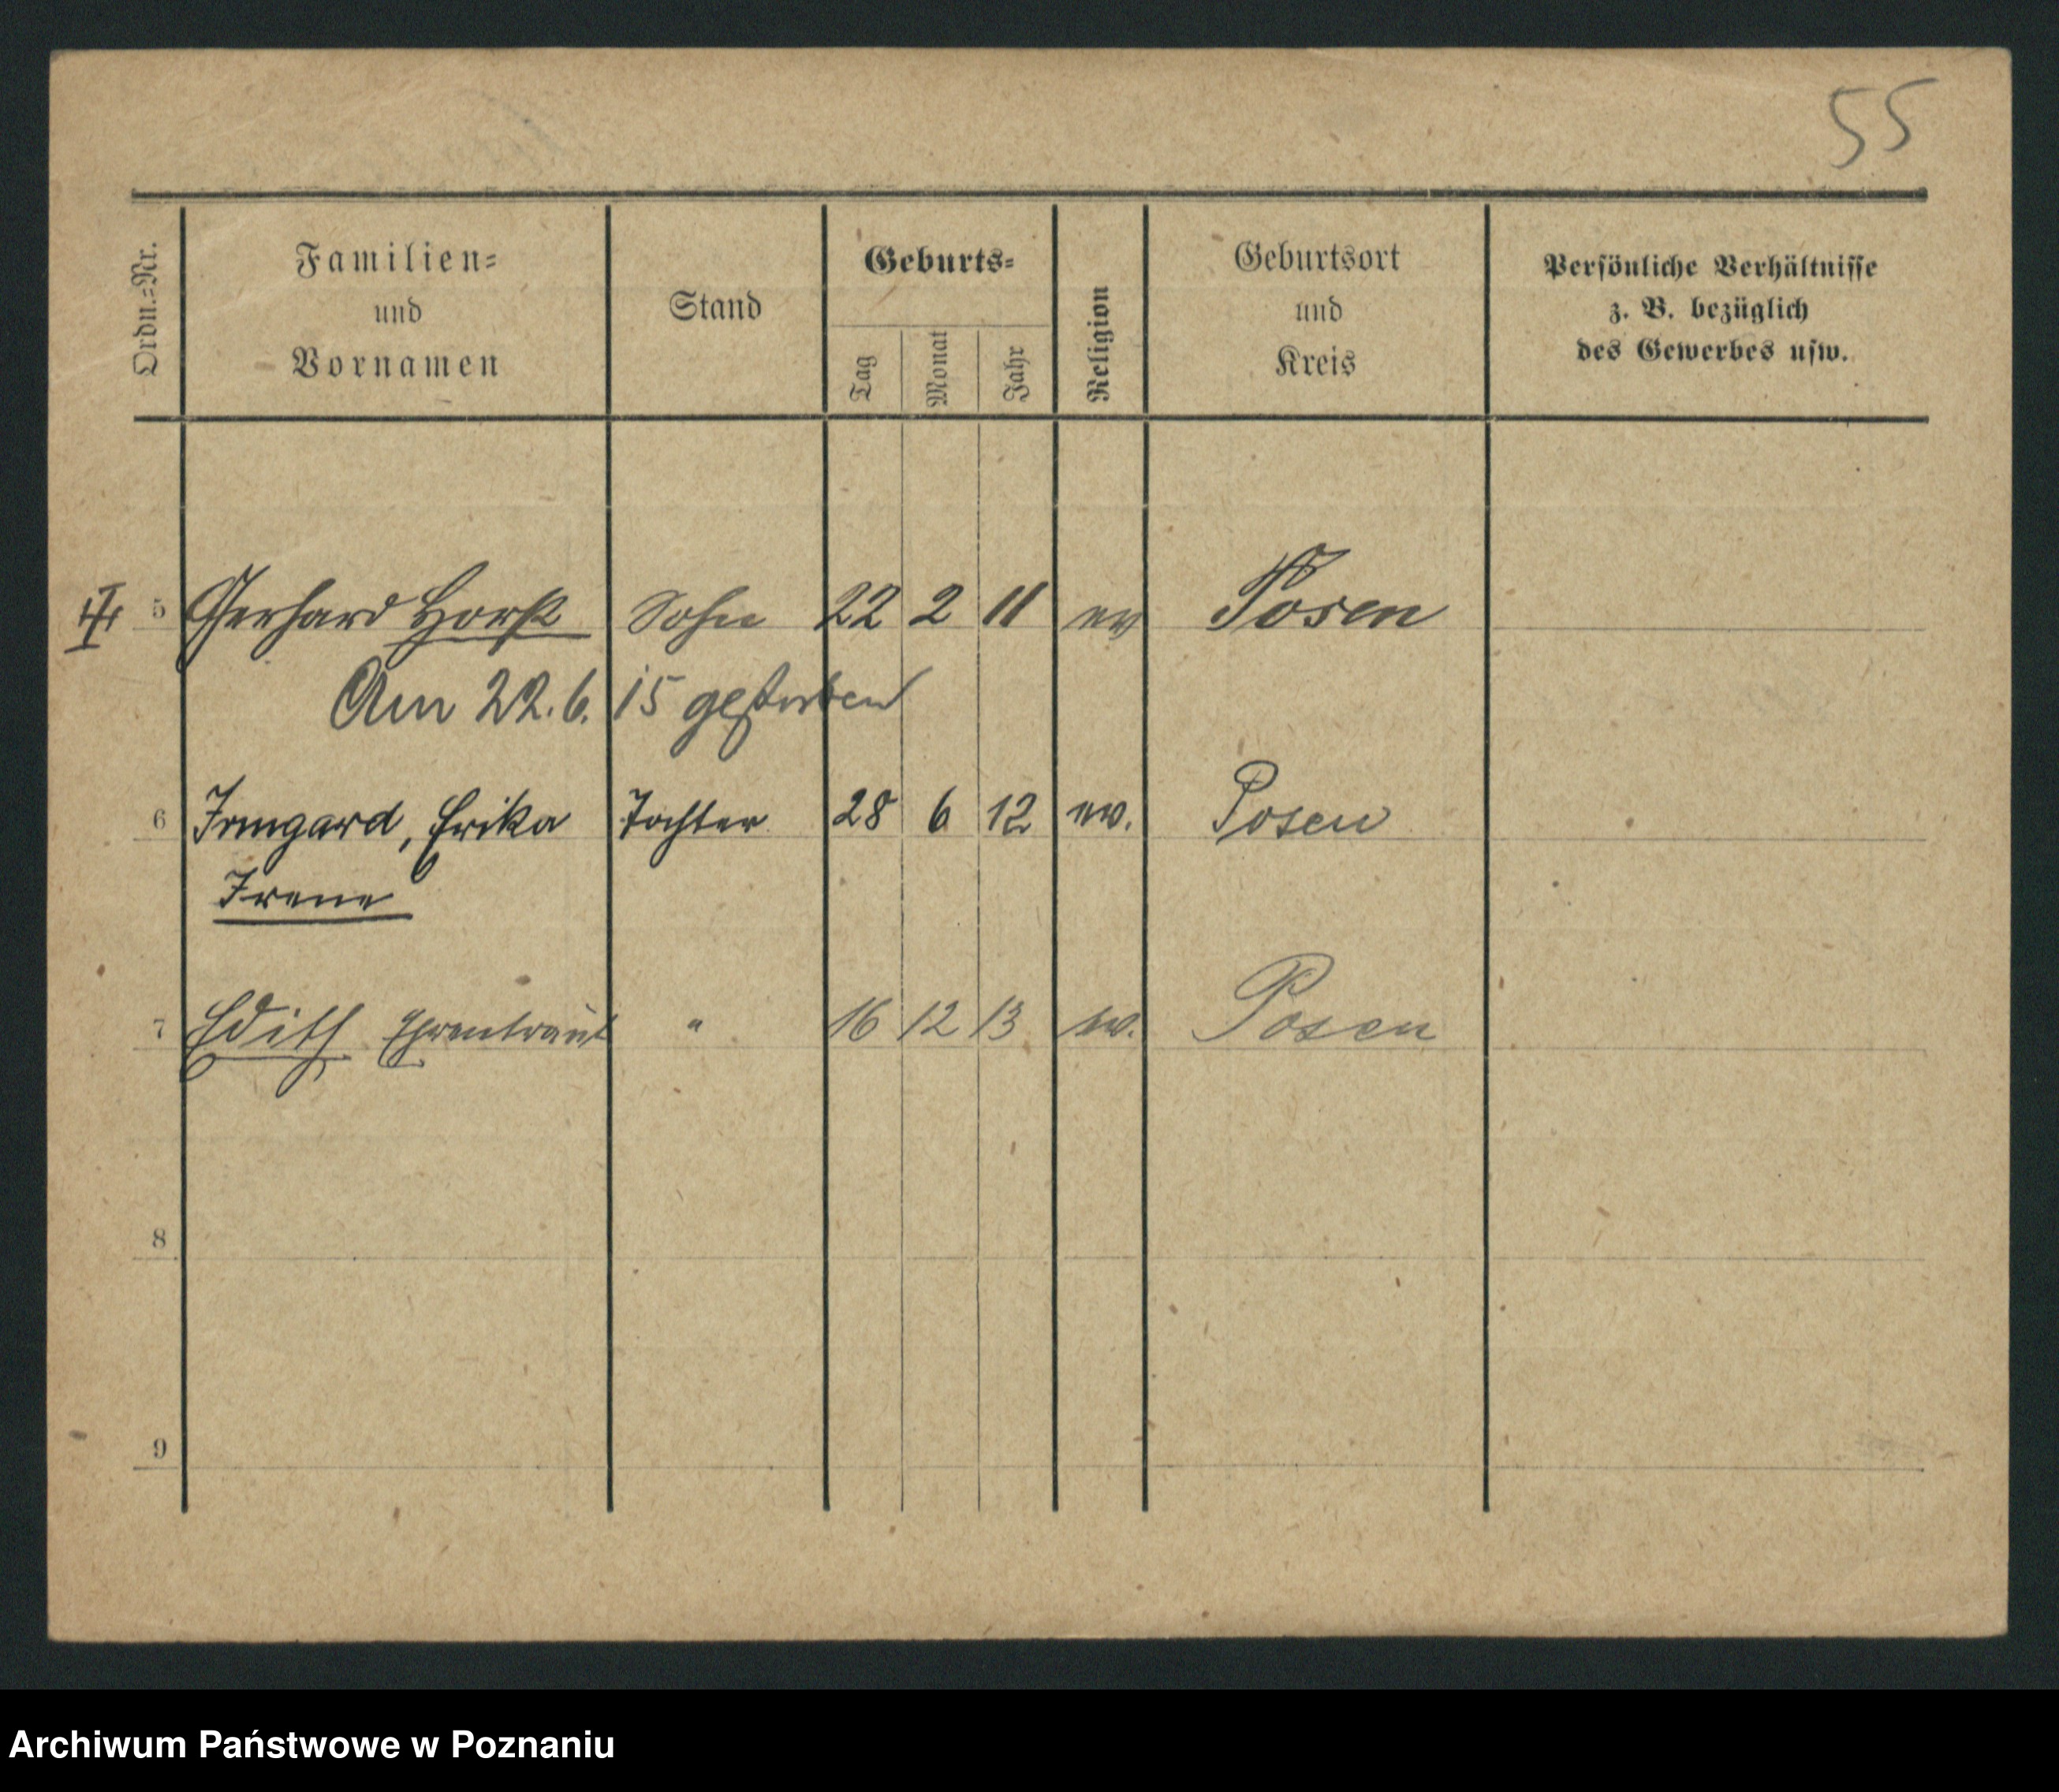 55
Ordn.=Nr.
Familien=
und
Vornamen
Stand
Geburts=
Tag
Monat
Jahr
Religion
Geburtsort
und
Kreis
Persönliche Verhältnisse
z. B. bezüglich
des Gewerbes usw.
5 Gerhard Horst Sohn 22 2 11 ev Posen
Am 22.6.15 gestorben
6 Irmgard, Erika Tochter 28 6 12 ev. Posen
Irene
7 Edith Ehrentraut " 16 12 13 ev. Posen
8
9
Archiwum Państwowe w Poznaniu